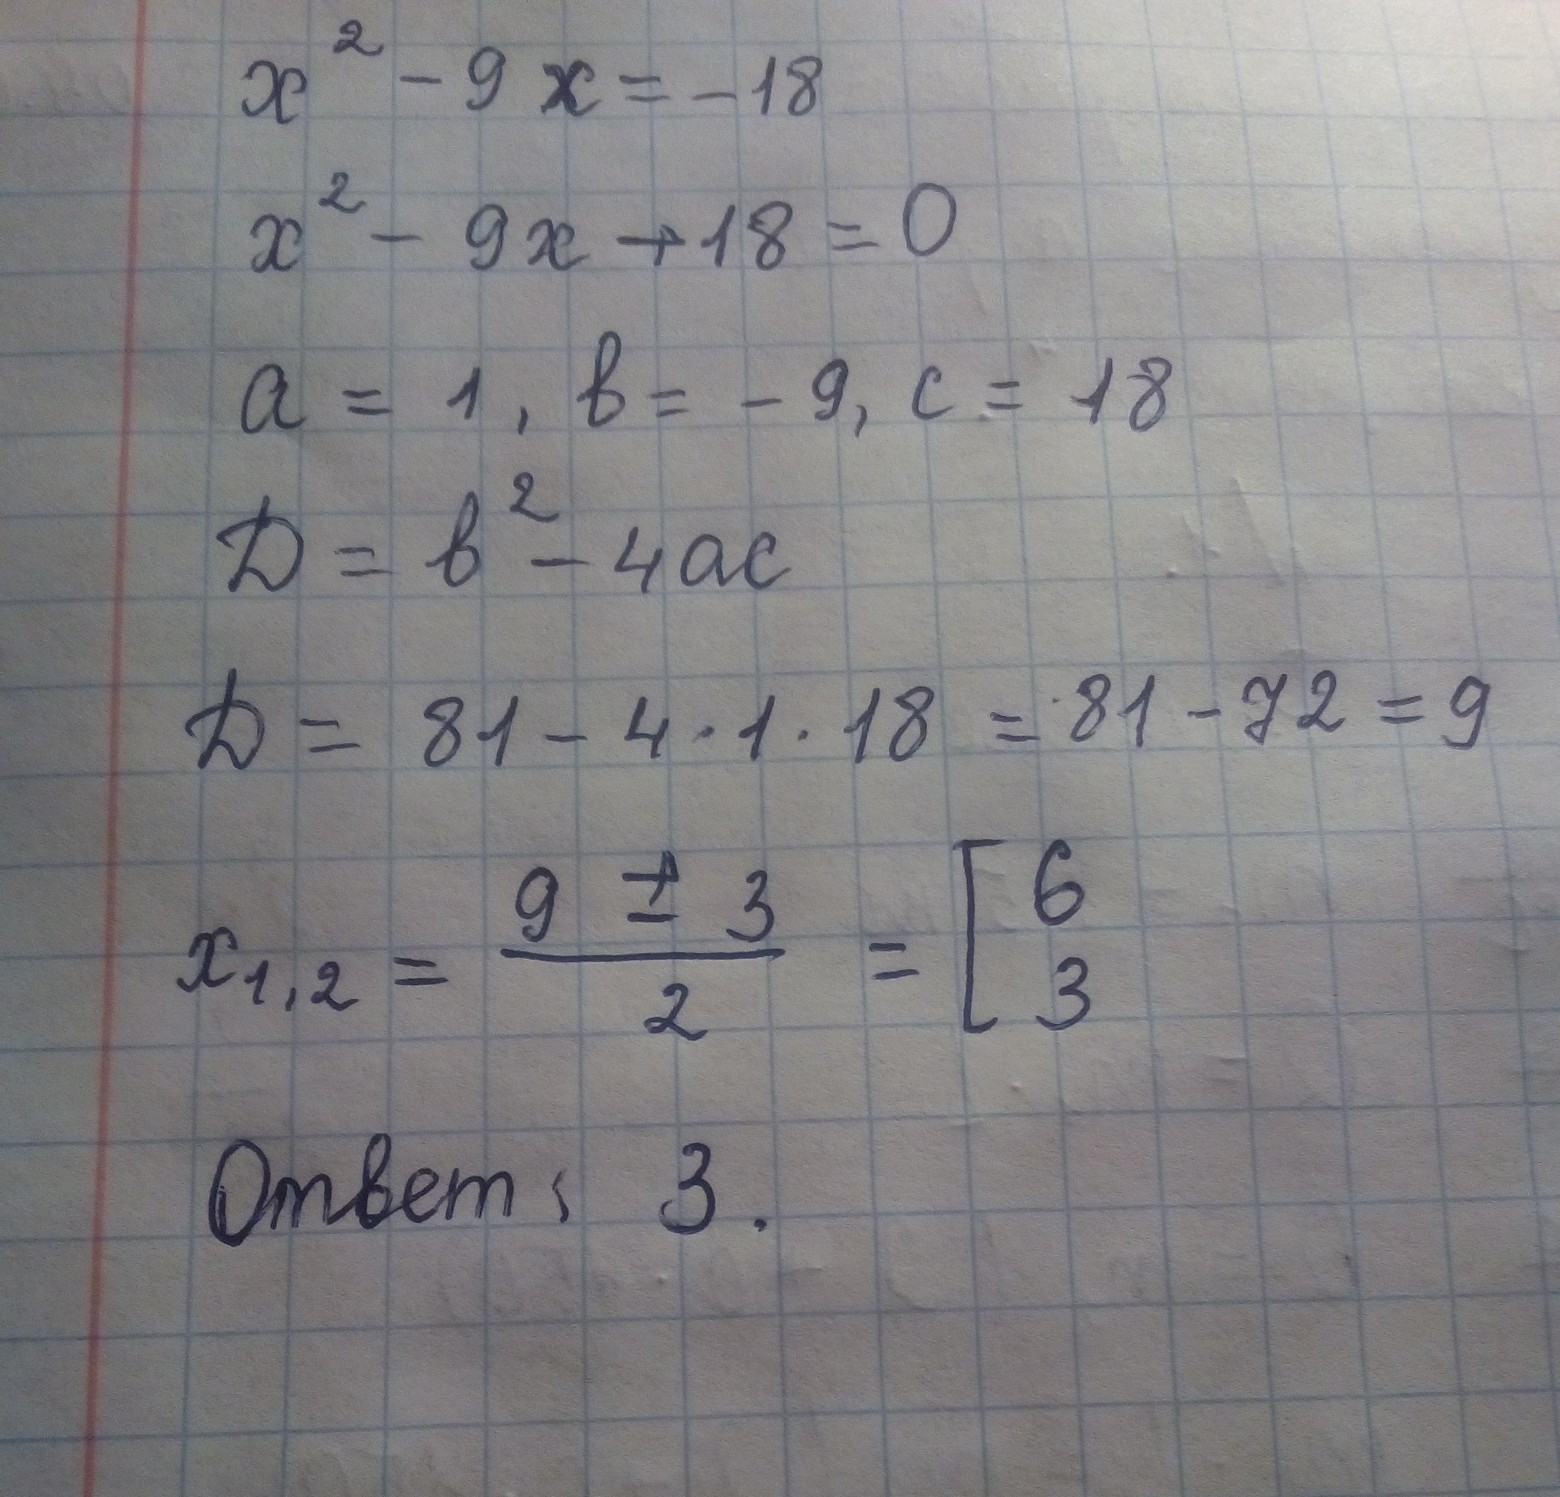 x² - 9x = -18
x² - 9x + 18 = 0
a = 1, b = -9, c = 18
D = b² - 4ac
D = 81 - 4·1·18 = 81 - 72 = 9
x₁,₂ = (9 ± 3)/2 = [6 3
Ответ: 3.